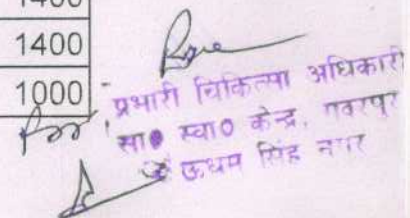 1400
1400
1000
प्रभारी चिकित्सा अधिकारी
सा० स्वा० केन्द्र, गदरपुर
ऊधम सिंह नगर